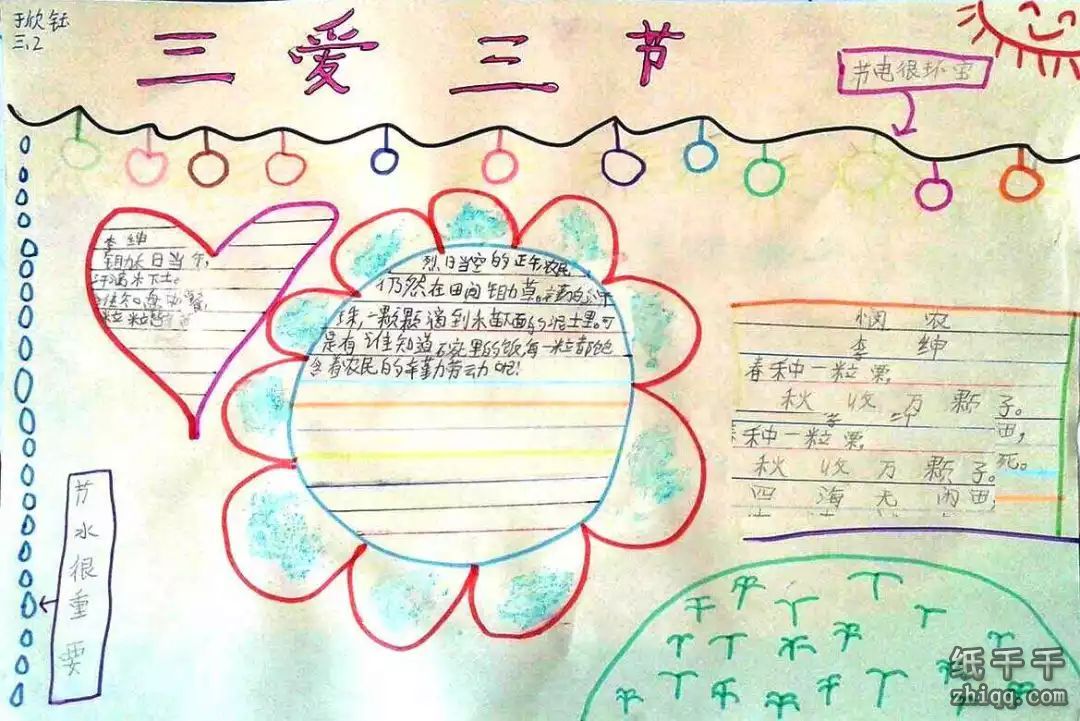 于欣钰
三.2
三爱三节
节电很环宝
李绅
锄禾日当午,
汗滴禾下土。
粒粒皆
烈日当空的正午,农民
仍然在田间锄草。
珠,一颗颗滴到禾苗下面的泥土里。可
是有谁知道 碗里的饭,每一粒都饱
含着农民的辛勤劳动呢!
悯农
李绅
春种一粒粟,
秋收万颗子。
种一粒粟,
田,
秋收万颗子。
死。
四海无闲田,
节水很重要
纸千千
zhiqq.com